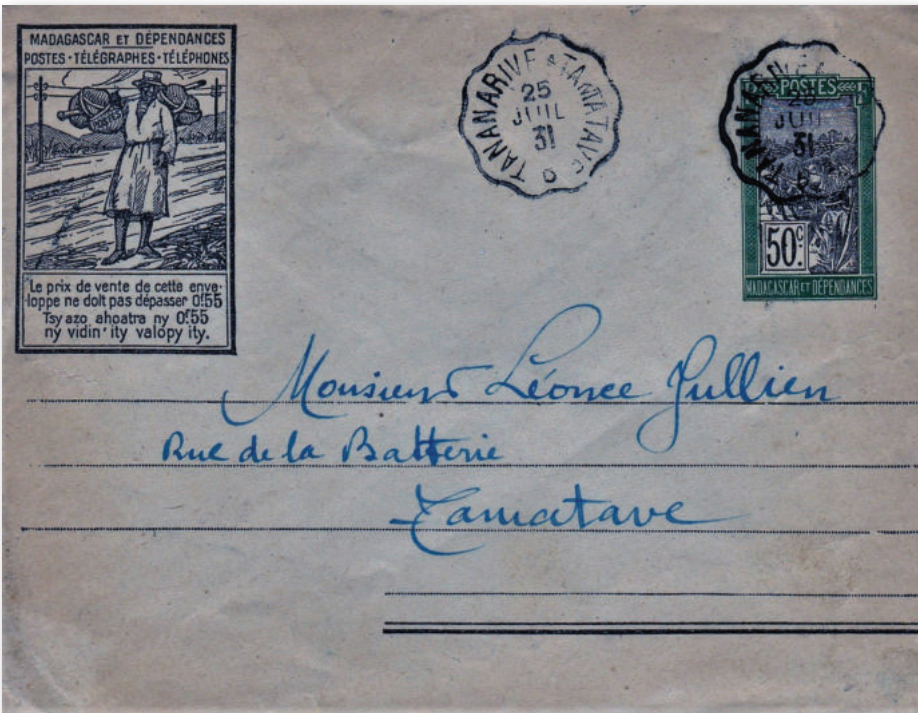 MADAGASCAR ET DÉPENDANCES
POSTES · TÉLÉGRAPHES · TÉLÉPHONES
Le prix de vente de cette enve-
loppe ne doit pas dépasser 0f.55
Tsy azo ahoatra ny 0f.55
ny vidin' ity valopy ity.
TANANARIVE A TAMATAVE
25
JUIL
31
POSTES
50c.
MADAGASCAR ET DÉPENDANCES
TANANARIVE A
JUIL
31
Monsieur Léonce Jullien
Rue de la Batterie
Tamatave